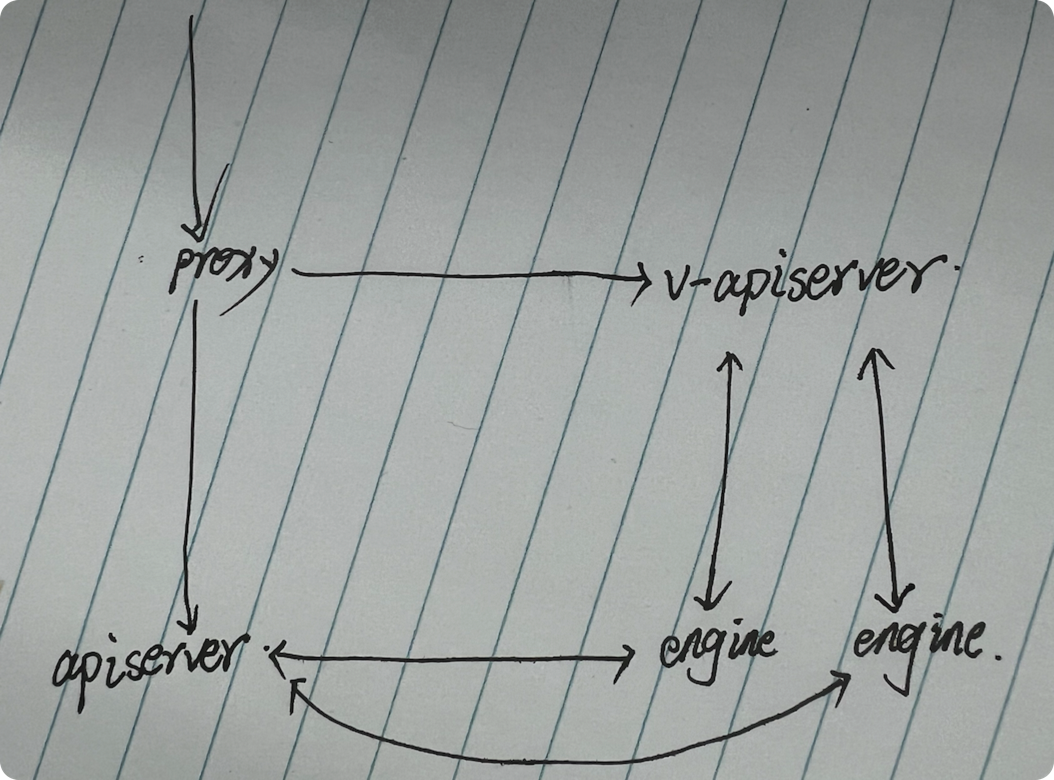 proxy
v-apiserver.
apiserver.
engine
engine.